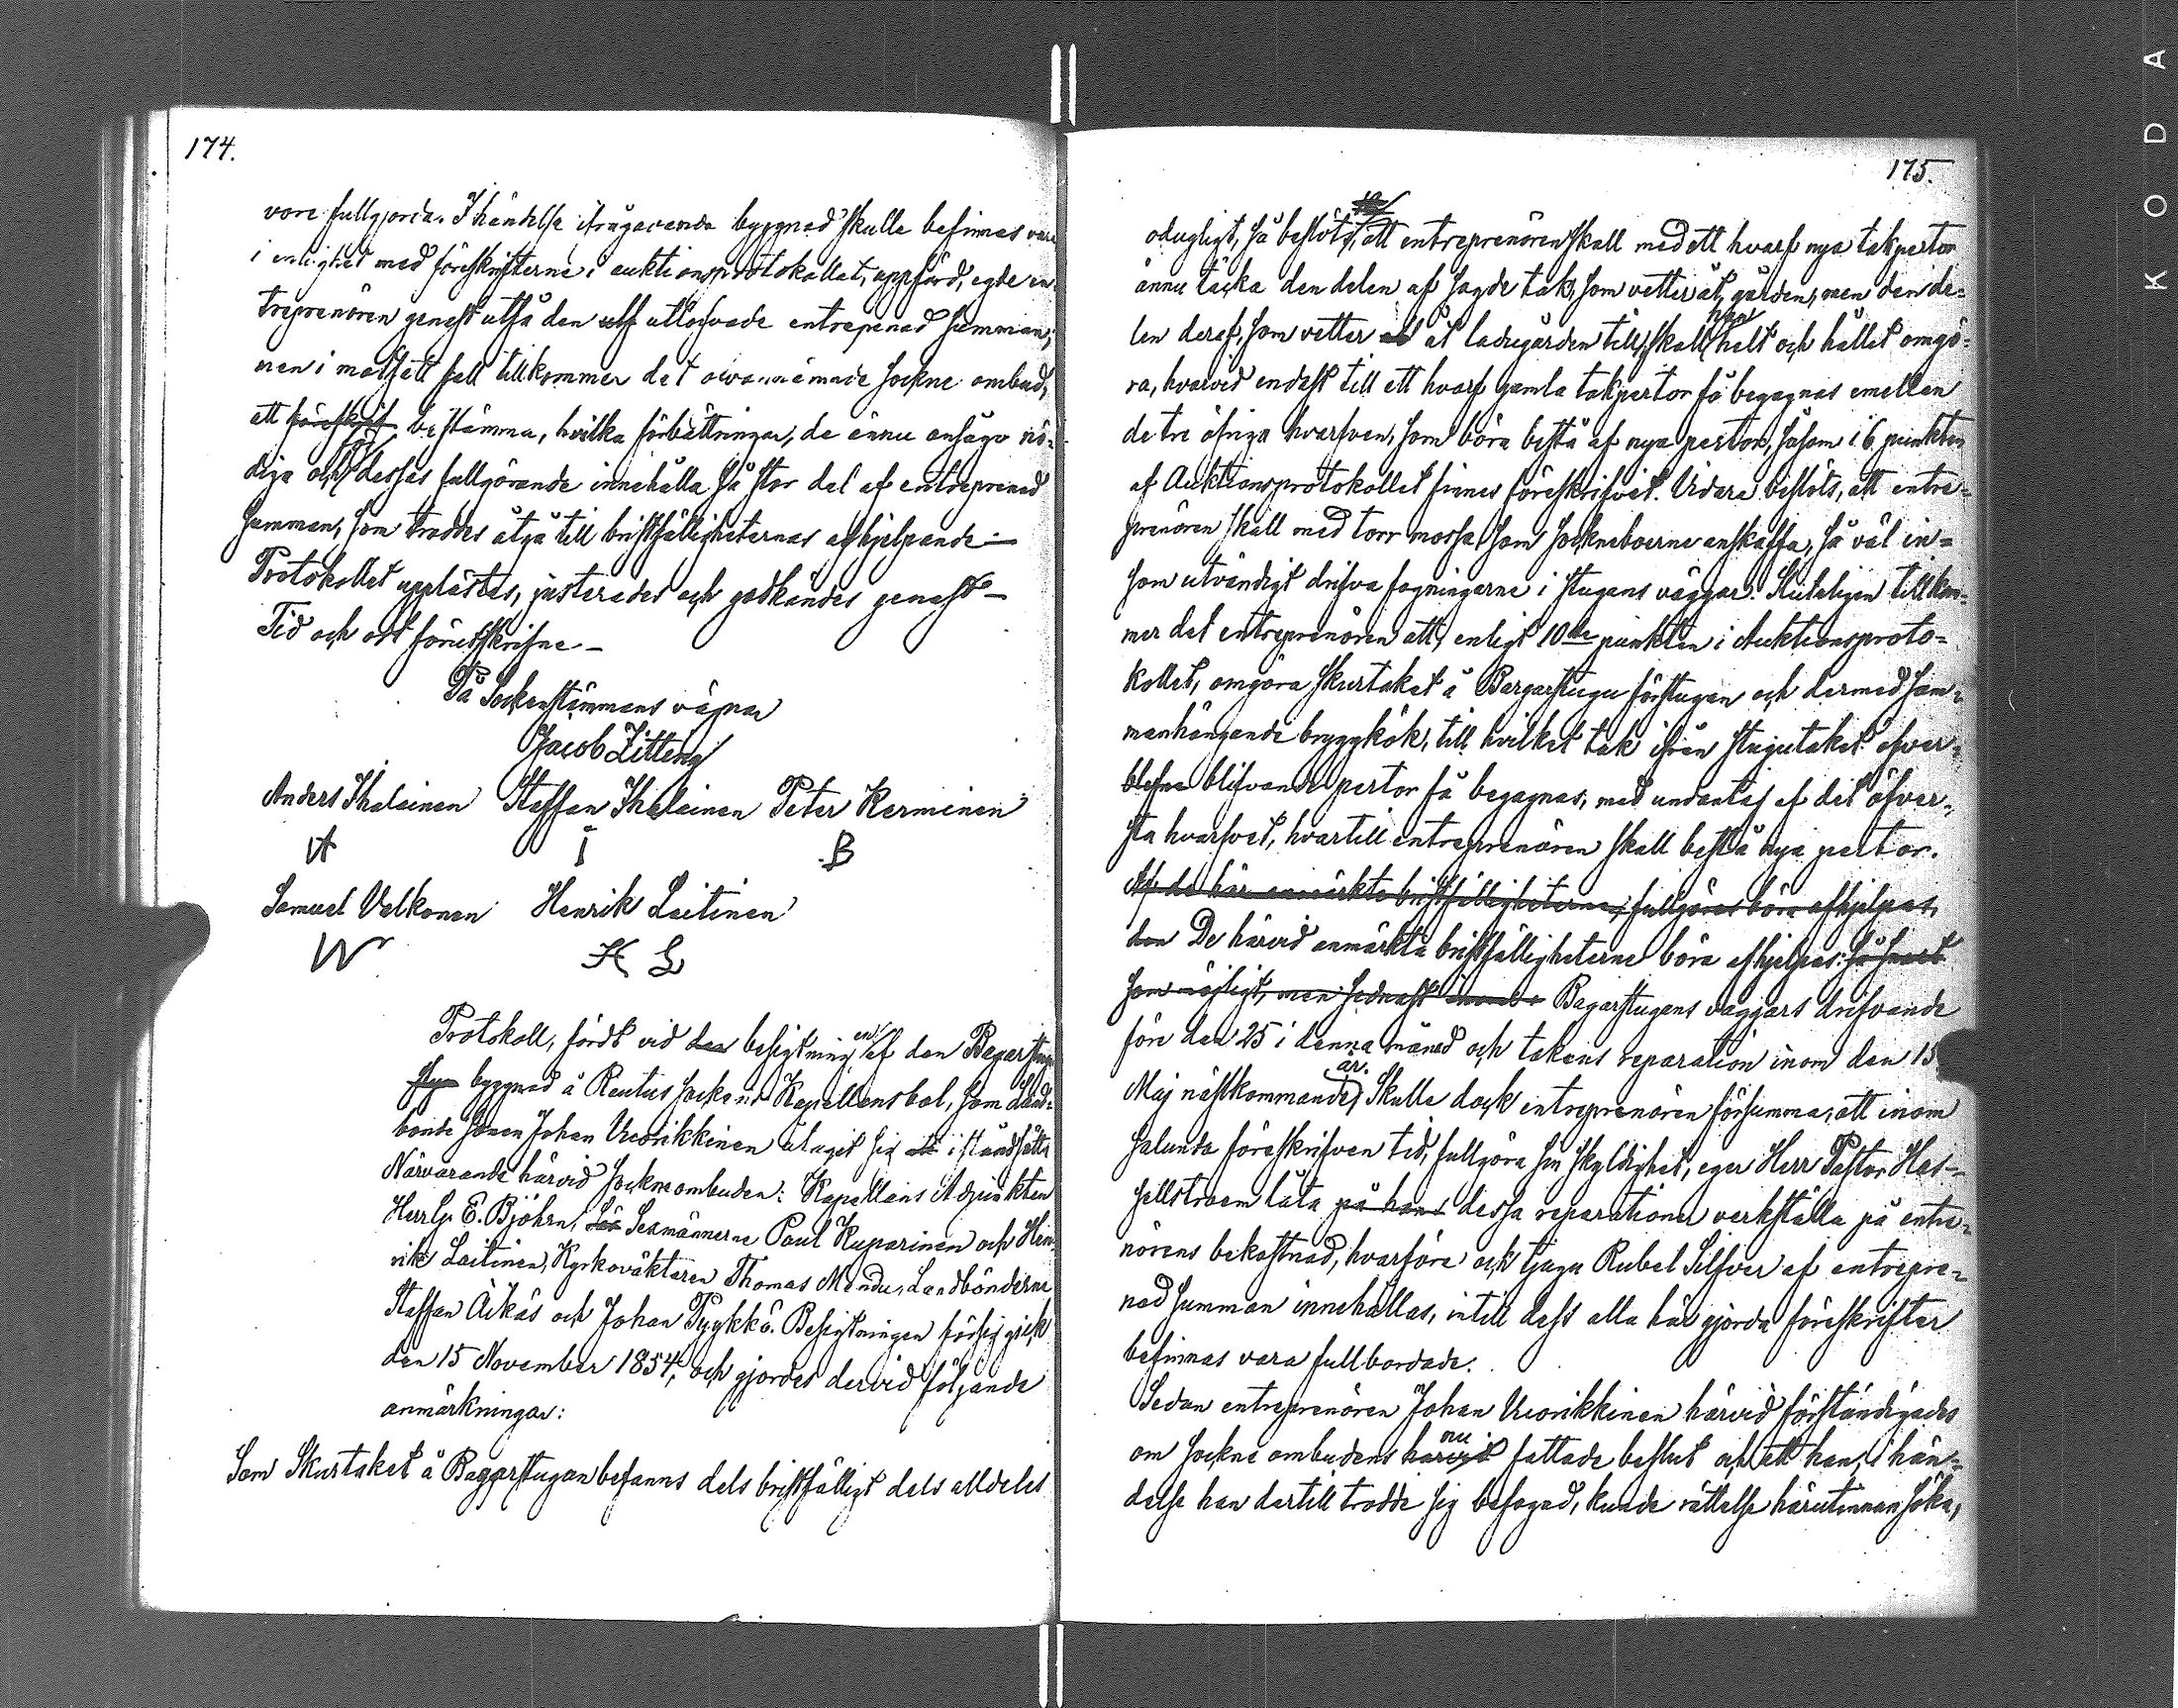 174.
vore fullgjorda. I händelse ifrågavarande byggnad skulle befinnas vara
i enlighet med föreskrifterne i auktionsprotokollet, uppförd, egde en-
treprenören genast utfå den utf utlofvade entrepenad summan;
men i motsatt fall tillkommer det ofvannämnde sockne ombud,
att föreskrif bestämma, hvilka förbättringar, de ännu ansågo nö-
diga och för dessas fullgörande innehålla så stor del af entreprenad
summan, som troddes åtgå till bristfälligheternas afhjelpande. —
Protokollet upplästes, justerades och godkändes genast —
Tid och ort förutskrifne —
På Sockenstämmans vägnar
Jacob Zitting
Anders Ihalainen Staffan Ihalainen Peter Kerminen
A I B
Samuel Valkonen Henrik Laitinen
W H L
Protokoll, fördt vid den besigtning en af den Bagarstugu
stugu byggnad å Rautus sockens Kapellansbol, som Land-
bonde sonen Johan Vuorikkinen åtagit sig att iståndsätta
Närvarande härvid Sockneombuden: Kapellans Adjunkten
Herr G. E. Björn, Sex Sexmännerne Paul Kuparinen och Hen-
rik Laitinen, Kyrkoväktaren Thomas Mandu, Landbönderne
Staffan Äikäs och Johan Pyykkö. Besigtningen försiggick
den 15 November 1854, och gjordes dervid följande
anmärkningar:
Som Skurtaket å Bagarstugan befanns dels bristfälligt dels alldeles
175.
odugligt, så beslöts, att entreprenören skall med ett hvarf nya takpertor
ännu täcka den delen af sagde tak, som vetter åt gården, men den de-
len deraf, som vetter åt ladugården till, skall han helt och hållet omgö-
ra, hvarvid endast till ett hvarf gamla takpertor få begagnas emellan
de tre öfriga hvarfven, som böra bestå af nya pertor, såsom i 6 punkten
af Auktionsprotokollet finnes föreskrifvet. Vidare beslöts, att entre-
prenören skall med torr mossa som sockneboerne anskaffa, så väl in-
som utvändigt drifva fogningarne i stugans väggar. Sluteligen tillkom-
mer det entreprenören att, enligt 10de punkten i Auktionsproto-
kollet, omgöra skurtaket å Bagarstugu förstugan och dermed sam-
manhängande bryggkök, till hvilket tak ifrån stugutaket öfver-
blefne blifvande pertor få begagnas, med undantag af det öfver-
sta hvarfvet, hvartill entreprenören skall bestå nya pertor.
Af de här anmärkta bristfälligheterna, fullgöras böra afhjelpas,
den De härvid anmärkta bristfälligheterne böra afhjelpas: så snart
som möjligt, men sednast inom Bagarstugans väggars drifvande
före den 25 i denna månad och takens reparation inom den 15
Maj nästkommande år. Skulle dock entreprenören försumma, att inom
sålunda föreskrifven tid, fullgöra sin skyldighet, eger Herr Pastor Has-
sellstroem låta på hans dessa reparationer verkställa på entre-
nörens bekostnad, hvarföre ock tjugu Rubel Silfver af entrepre-
nad summan innehållas, intill dess alla här gjorda föreskrifter
befinnas vara fullbordade.
Sedan entreprenören Johan Vuorikkinen härvid förständigades
om sockne ombudens härvid nu fattade beslut och att han, i hän-
delse han dertill trodde sig befogad, kunde rättelse härutinnan söka,
KODA